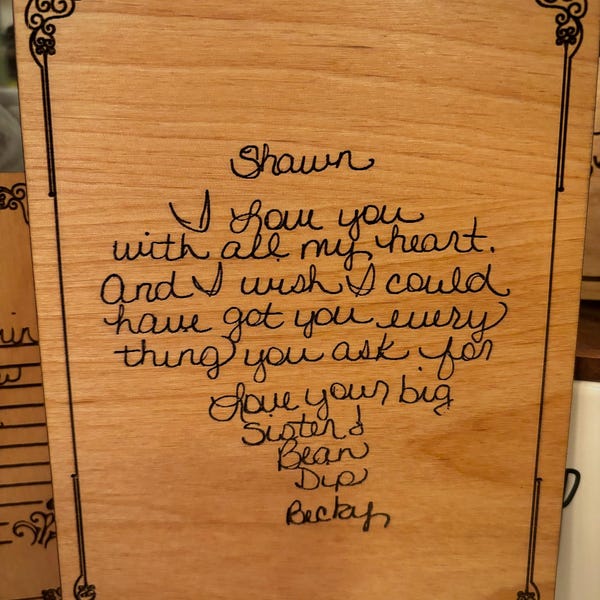 Shawn
I love you
with all my heart.
And I wish I could
have got you every
thing you ask for
Love your big
Sister
Bean
Dip
Becky